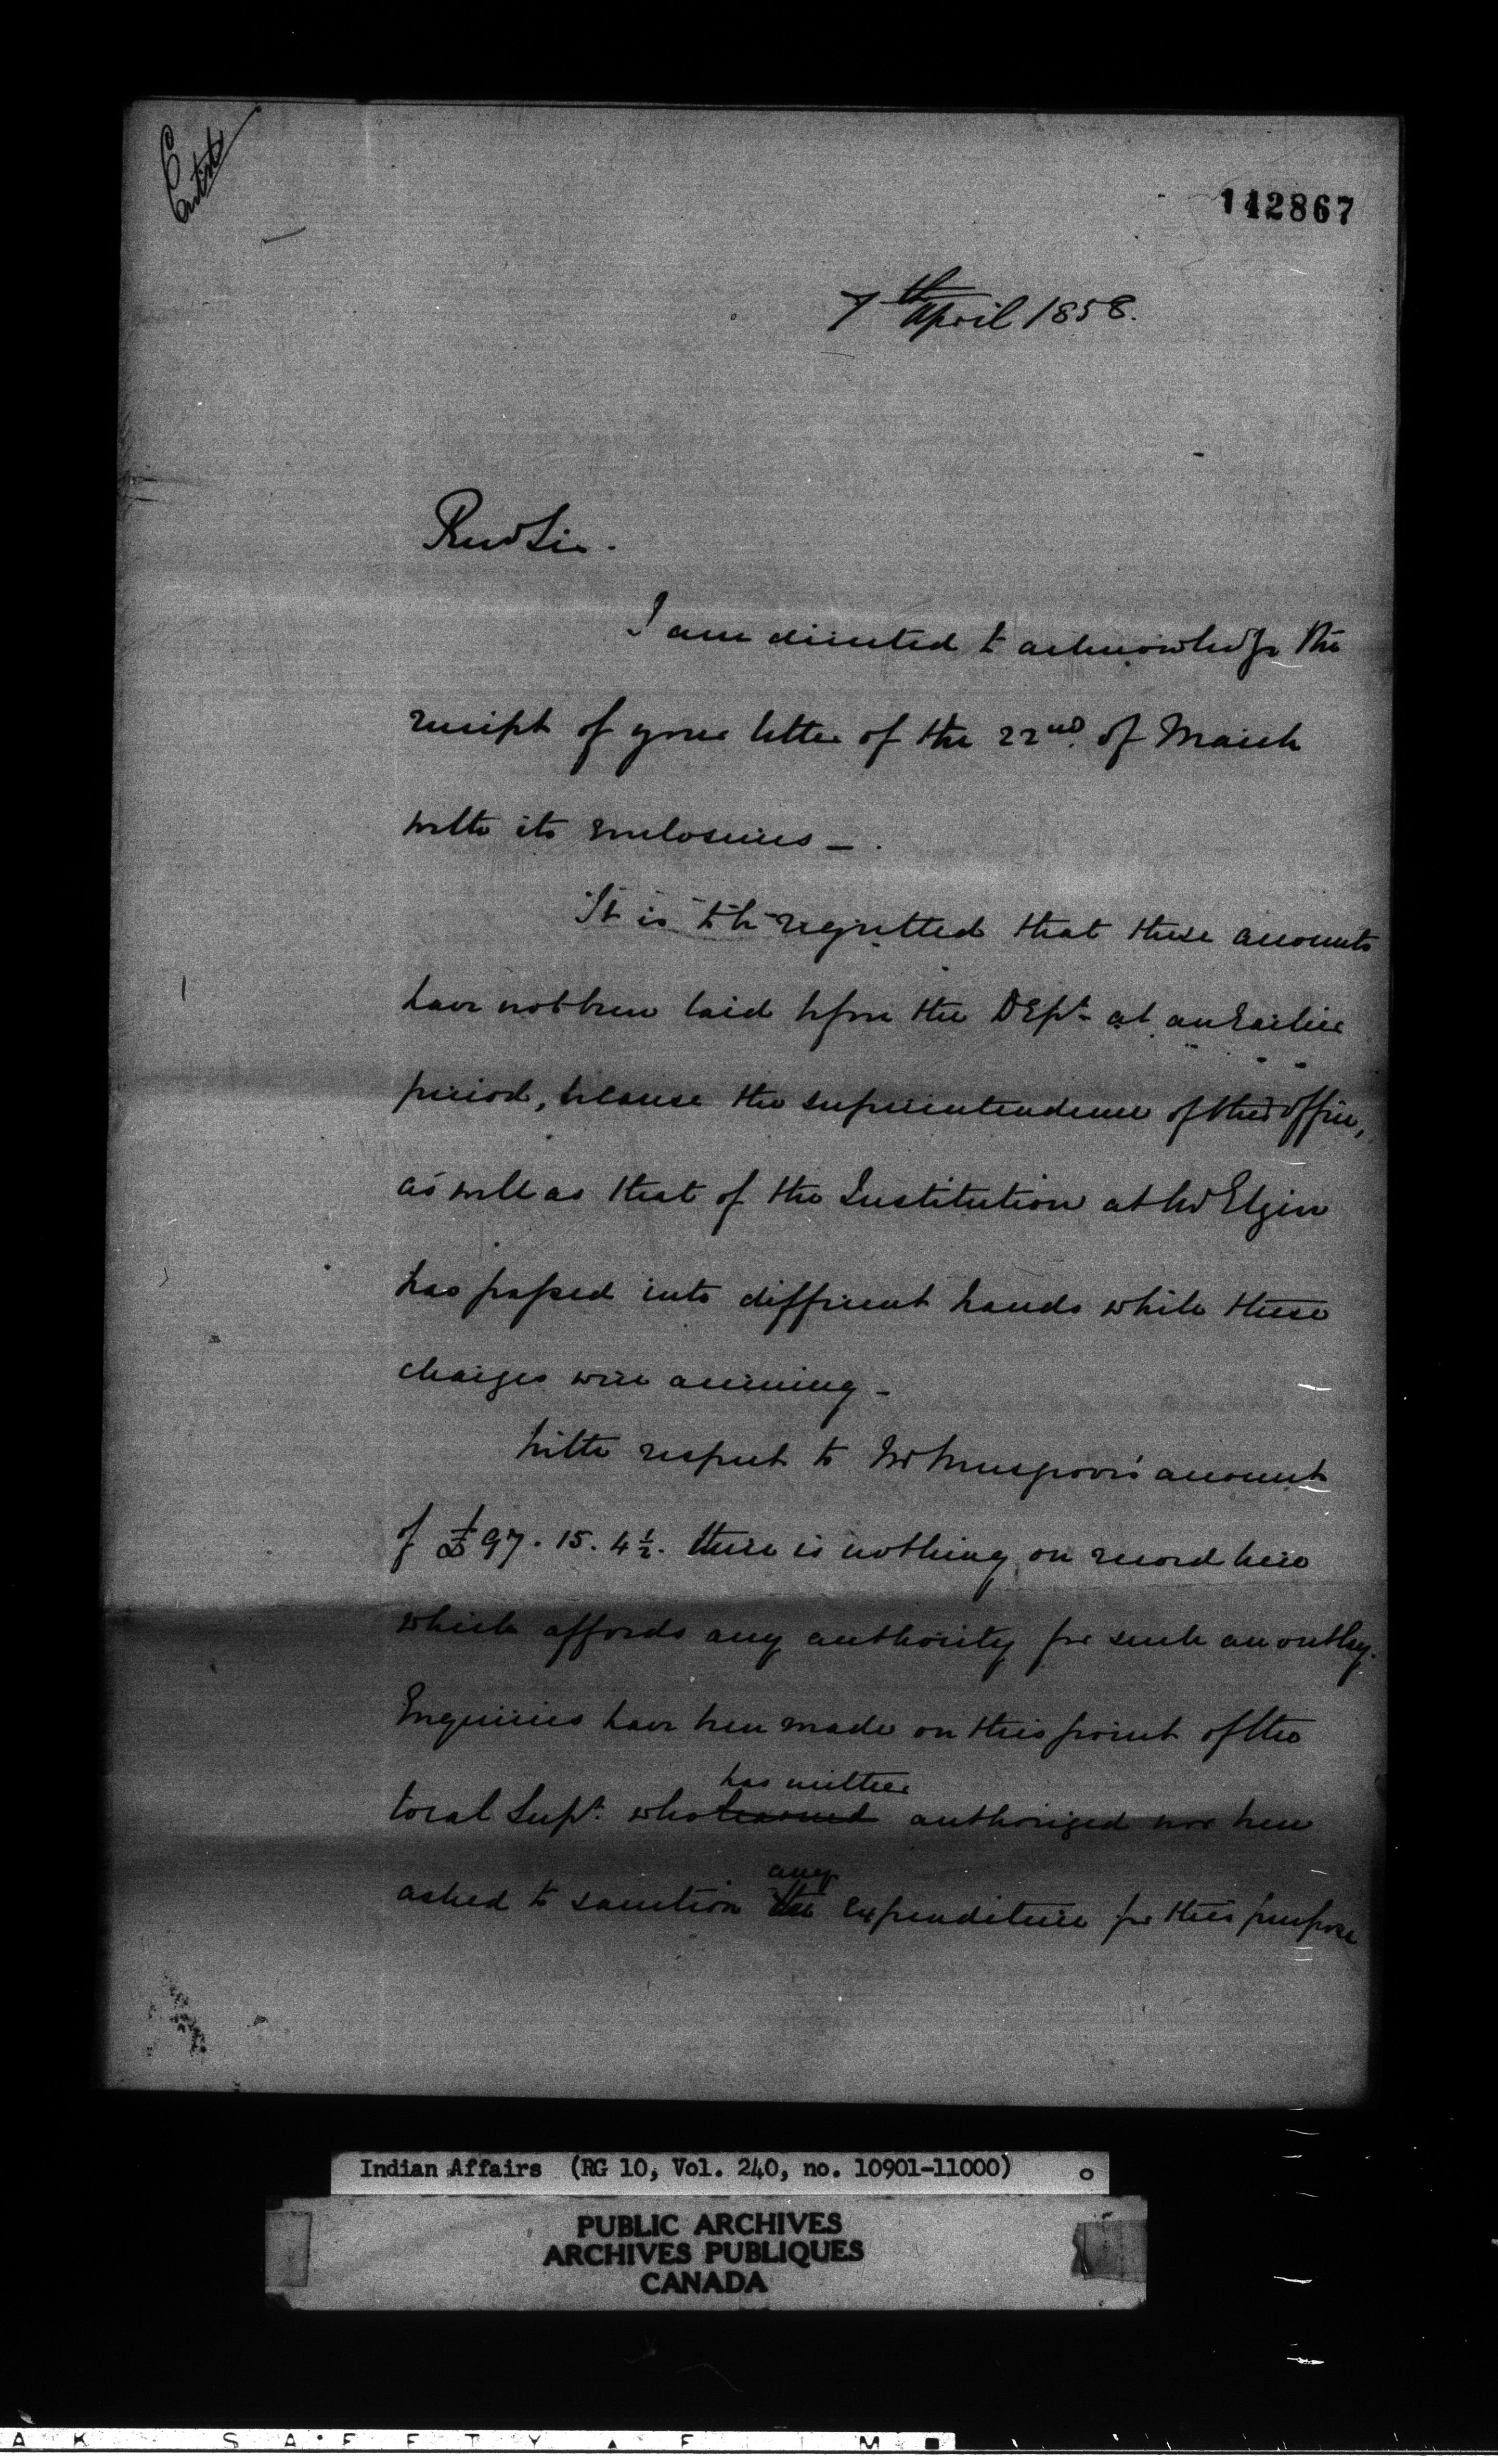 Entd
142867
7th April 1858.
Revd Sir.
I am directed to acknowledge the
receipt of your letter of the 22nd. of March
with its enclosures _ .
It is to be regretted that these accounts
have not been laid before the Dept. at an Earlier
period, because the superintendence of this Office,
as well as that of the Institution at Mt Elgin
has passed into different hands while these
charges were accruing -
With respect to Mr Musgrove's account
of £97. 15. 4½. there is nothing on record here
which affords any authority for such an outlay.
Enquiries have been made on this point of the
has neither
local Supt. who authorized nor been
any
asked to sanction the expenditure for this purpose
Indian Affairs (RG 10, Vol. 240, no. 10901-11000)
PUBLIC ARCHIVES
ARCHIVES PUBLIQUES
CANADA
A K S A F E T Y F I L M